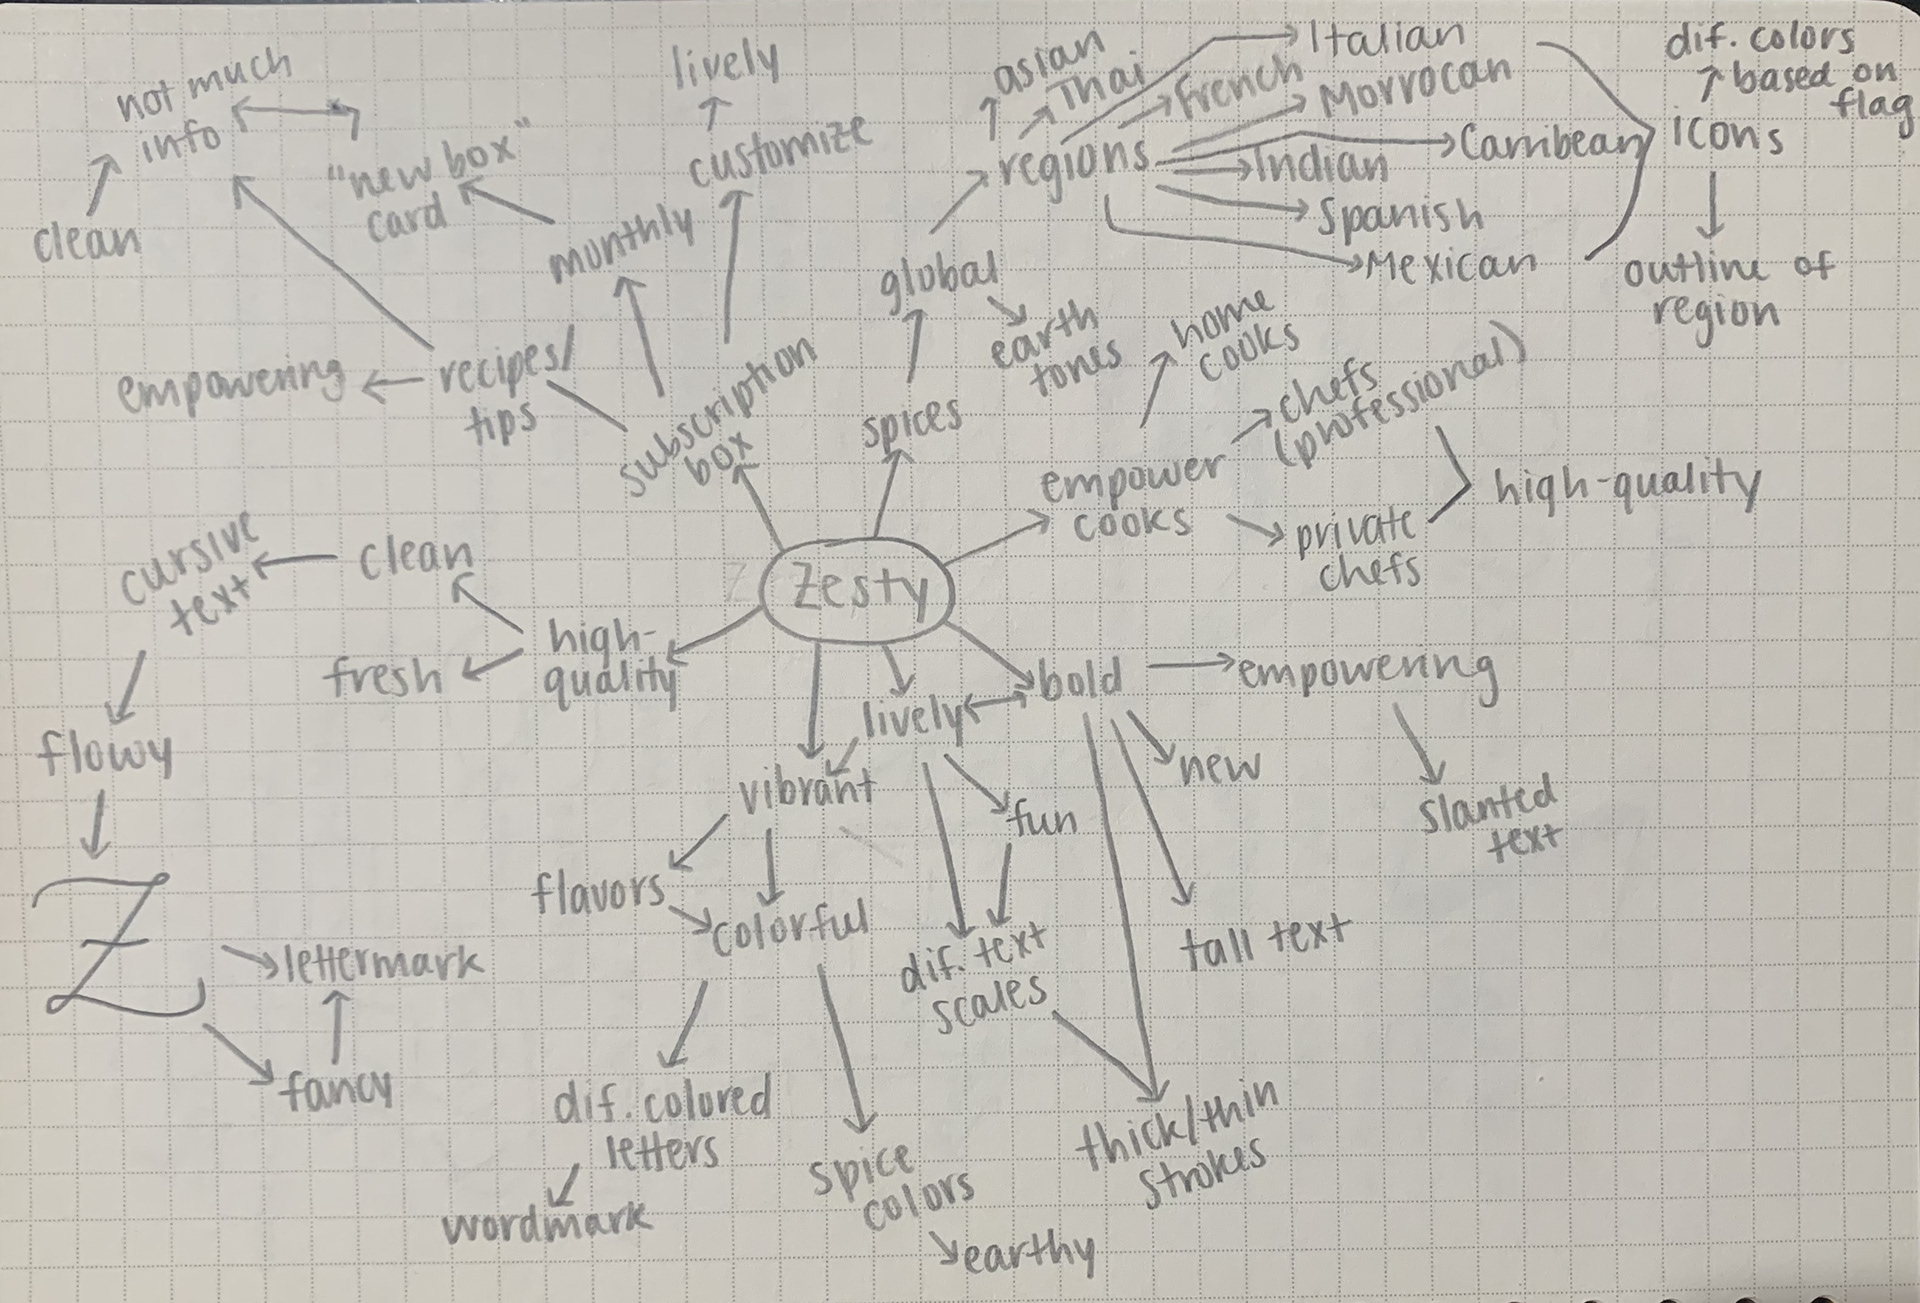 not much
info
clean
"new box"
card
monthly
lively
customize
empowering
recipes/
tips
subscription
box
asian
Thai
French
Italian
Morrocan
regions
Carribean
Indian
Spanish
Mexican
icons
dif. colors
based on
flag
outline of
region
global
earth
tones
spices
home
cooks
chefs
(professional)
empower
cooks
private
chefs
high-quality
cursive
text
clean
Z
Zesty
high-
quality
fresh
flowy
Z
lettermark
fancy
lively
bold
empowering
new
slanted
text
vibrant
fun
flavors
colorful
dif. text
scales
tall text
dif. colored
letters
wordmark
spice
colors
earthy
thick/thin
strokes